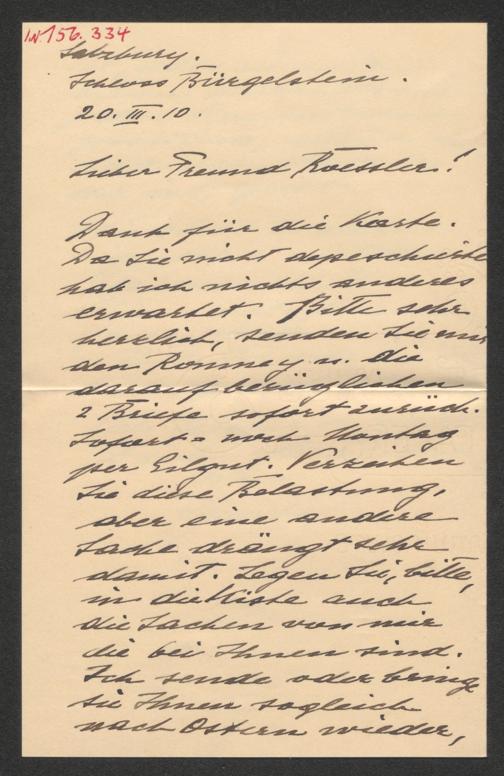 IN 156.334
Salzburg.
Schloss Bürgelstein.
20. III. 10.
Lieber Freund Roessler!
Dank für die Karte.
Da Sie nicht depeschirten
hab ich nichts anderes
erwartet. Bitte sehr
herzlich, senden Sie mir
den Romney u. die
darauf bezüglichen
2 Briefe sofort zurück.
Sofort = noch Montag
per Eilgut. Verzeihen
Sie diese Belastung,
aber eine andere
Sache drängt sehr
damit. Legen Sie, bitte,
in die Kiste auch
die Sachen von mir
die bei Ihnen sind.
Ich sende oder bringe
sie Ihnen sogleich
nach Ostern wieder,